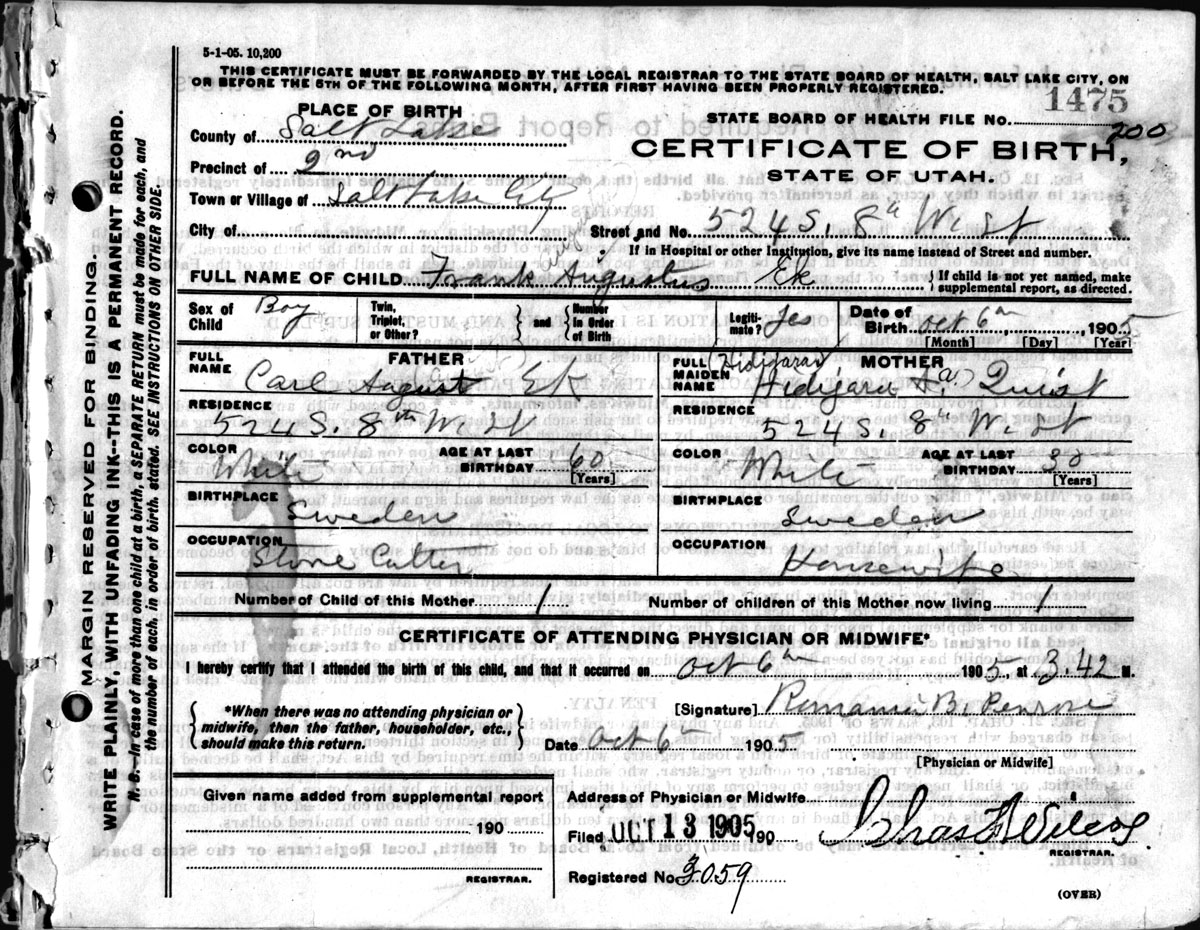 5-1-05. 10,200
THIS CERTIFICATE MUST BE FORWARDED BY THE LOCAL REGISTRAR TO THE STATE BOARD OF HEALTH, SALT LAKE CITY, ON
OR BEFORE THE 5TH OF THE FOLLOWING MONTH, AFTER FIRST HAVING BEEN PROPERLY REGISTERED.
1475
PLACE OF BIRTH
STATE BOARD OF HEALTH FILE NO.
200
County of Salt Lake
CERTIFICATE OF BIRTH,
Precinct of 2nd
STATE OF UTAH.
Town or Village of Salt Lake City
City of
Street and No. 524 S. 8th West
If in Hospital or other Institution, give its name instead of Street and number.
FULL NAME OF CHILD Frank Augustus Ek
{ If child is not yet named, make
supplemental report, as directed.
Sex of Child Boy
Twin, Triplet, or Other?
} and { Number in Order of Birth
Legiti-mate? Yes
Date of Birth Oct 6th 1905
[Month] [Day] [Year]
FATHER
FULL NAME Carl August Ek
MOTHER
FULL MAIDEN NAME A. Quist
RESIDENCE 524 S. 8th West
RESIDENCE 524 S. 8th West
COLOR White
AGE AT LAST BIRTHDAY 60 [Years]
COLOR White
AGE AT LAST BIRTHDAY 30 [Years]
BIRTHPLACE Sweden
BIRTHPLACE Sweden
OCCUPATION Stone Cutter
OCCUPATION Housewife
Number of Child of this Mother 1
Number of children of this Mother now living 1
CERTIFICATE OF ATTENDING PHYSICIAN OR MIDWIFE*
I hereby certify that I attended the birth of this child, and that it occurred on Oct 6th 1905, at 3.42 M.
{ *When there was no attending physician or
midwife, then the father, householder, etc.,
should make this return. }
[Signature] Romania B. Penrose
Date Oct 6th 1905
[Physician or Midwife]
Given name added from supplemental report
190
REGISTRAR.
Address of Physician or Midwife
Filed OCT 13 1905 190
Chas. Wilcox
REGISTRAR.
Registered No. 3059
(OVER)
MARGIN RESERVED FOR BINDING.
WRITE PLAINLY, WITH UNFADING INK--THIS IS A PERMANENT RECORD.
N. B.--In case of more than one child at a birth, a SEPARATE RETURN must be made for each, and
the number of each, in order of birth, stated. SEE INSTRUCTIONS ON OTHER SIDE.